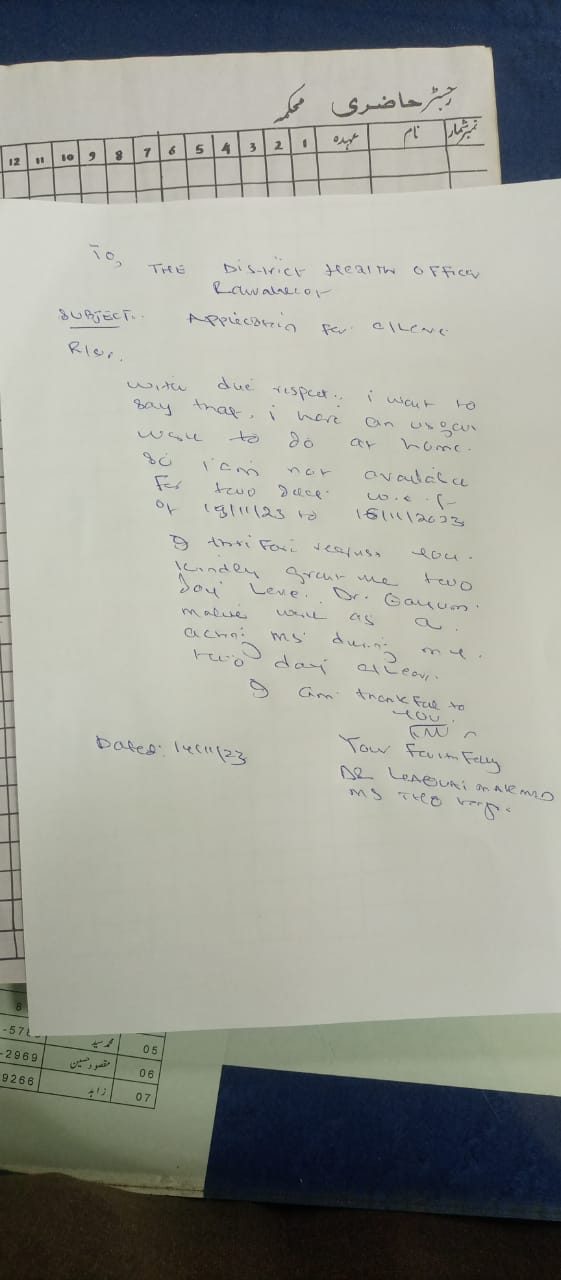 رجسٹر حاضری محکمہ
نمبر شمار نام عہدہ 1 2 3 4 5 6 7 8 9 10 11 12
To,
THE District Health Officer
Rawalacot
SUBJECT:. Application for c/Leave
R/Sir,
with due respect., i want to
say that, i have an
work to do at home.
So i am not available
For two w.e.f
of /11/23 to 16/11/2023
I you.
kindly grant me two
day Leve. Dr. Qayum.
work as a.
acting MS during my.
two day c/Leav.
I am thankful to
you.
Dated: 14/11/23
Your Faithfully
DR
MS THQ
8
05 محمد سید
-2969 06 مقصود حسین
9266 07 زاہد